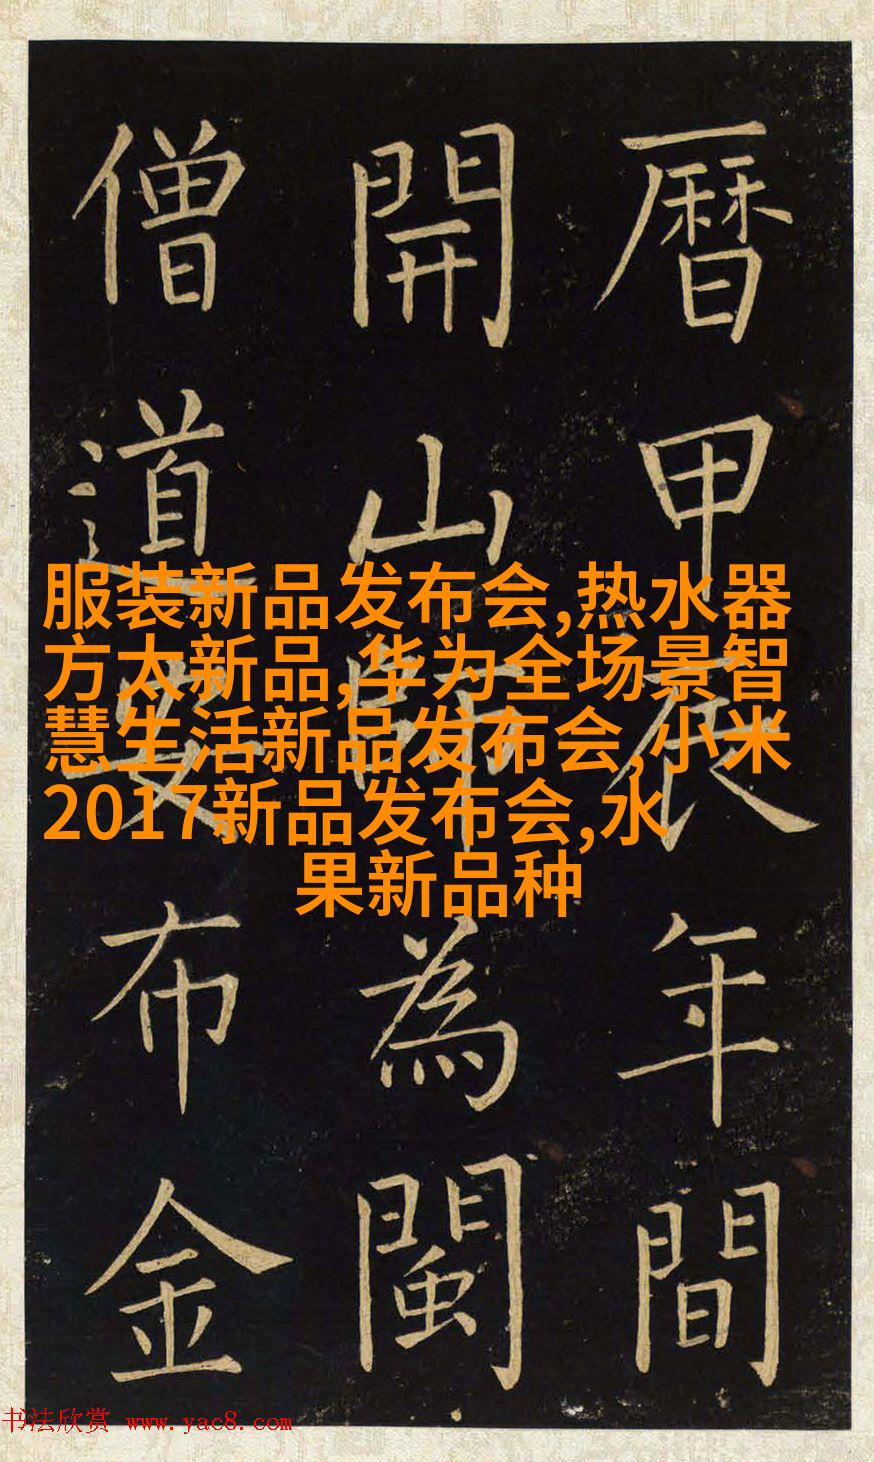 暦甲辰年間
開山師為閩
僧道布金
服装新品发布会,热水器
方太新品,华为全场景智
慧生活新品发布会,小米
2017新品发布会,水
果新品种
书法欣赏 www.yac8.com